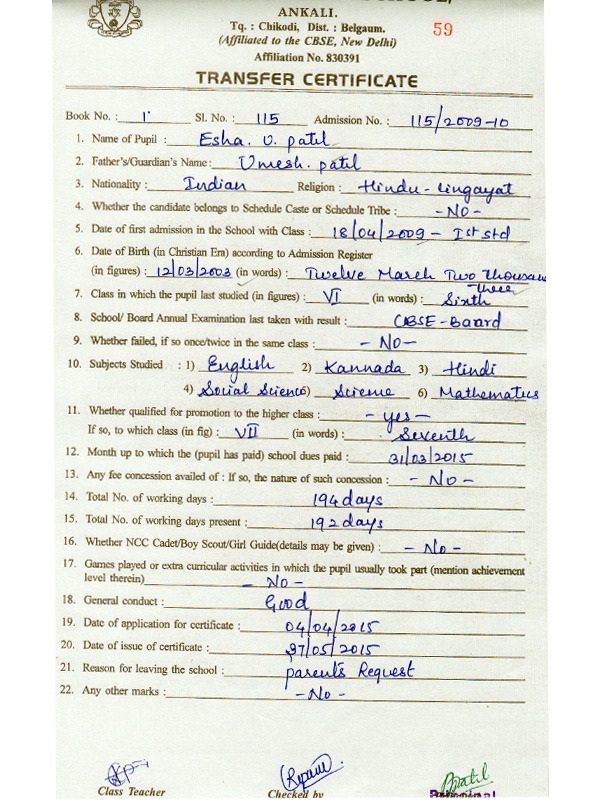 ANKALI.
Tq. : Chikodi, Dist. : Belgaum. 59
(Affiliated to the CBSE, New Delhi)
Affiliation No. 830391
TRANSFER CERTIFICATE
Book No. : 1 Sl. No. : 115 Admission No. : 115/2009-10
1. Name of Pupil : Esha. U. patil
2. Father's/Guardian's Name : Umesh. patil
3. Nationality : Indian Religion : Hindu - Lingayat
4. Whether the candidate belongs to Schedule Caste or Schedule Tribe : -NO-
5. Date of first admission in the School with Class : 18/04/2009 - Ist std
6. Date of Birth (in Christian Era) according to Admission Register
(in figures) : 12/03/2003 (in words) : Twelve March Two thousan
three
7. Class in which the pupil last studied (in figures) : VI (in words) : Sixth
8. School/ Board Annual Examination last taken with result : CBSE-Board
9. Whether failed, if so once/twice in the same class : - NO-
10. Subjects Studied : 1) English 2) Kannada 3) Hindi
4) Social Science 5) Science 6) Mathematics
11. Whether qualified for promotion to the higher class : - yes -
If so, to which class (in fig) : VII (in words) : Seventh
12. Month up to which the (pupil has paid) school dues paid : 31/03/2015
13. Any fee concession availed of : If so, the nature of such concession : - No -
14. Total No. of working days : 194 days
15. Total No. of working days present : 192 days
16. Whether NCC Cadet/Boy Scout/Girl Guide(details may be given) : - No -
17. Games played or extra curricular activities in which the pupil usually took part (mention achievement
level therein) - No -
18. General conduct : Good
19. Date of application for certificate : 04/04/2015
20. Date of issue of certificate : 27/05/2015
21. Reason for leaving the school : parent's Request
22. Any other marks : - No -
Class Teacher Checked by Principal